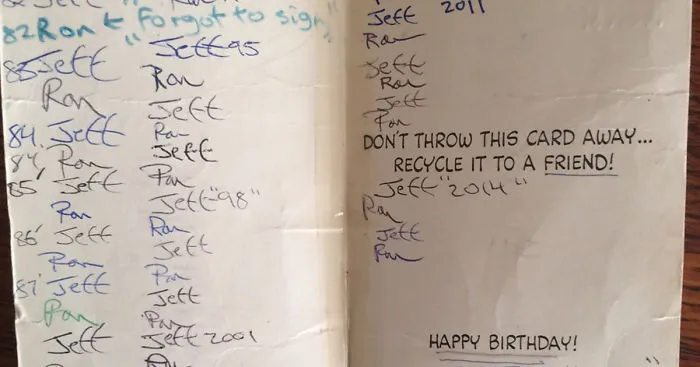 82 Ron ← "Forgot to sign"
83 Jeff
Ron
84. Jeff
84' Ron
85' Jeff
Ron
86' Jeff
Ron
87' Jeff
Ron
Jeff
Jeff 95
Ron
Jeff
Ron
Jeff
Ron
Jeff "98"
Ron
Jeff
Ron
Jeff
Ron
Jeff 2001
Jeff 2011
Ron
Jeff
Ron
Jeff
Ron
DON'T THROW THIS CARD AWAY...
RECYCLE IT TO A FRIEND!
Jeff "2014"
Ron
Jeff
Ron
HAPPY BIRTHDAY!